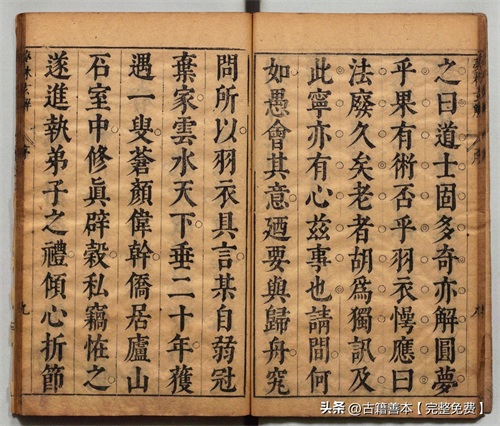 之曰道士固多奇亦解圓夢
乎果有術否乎羽衣愕應曰
法廢久矣老者胡爲獨訊及
此寧亦有心茲事也請問何
如愚會其意廼要與歸舟究
問所以羽衣具言某自弱冠
棄家雲水天下垂二十年獲
遇一叟蒼顏偉幹僑居廬山
石室中修眞辟穀私竊恠之
遂進執弟子之禮傾心折節
九
头条 @古籍善本【完整免费】